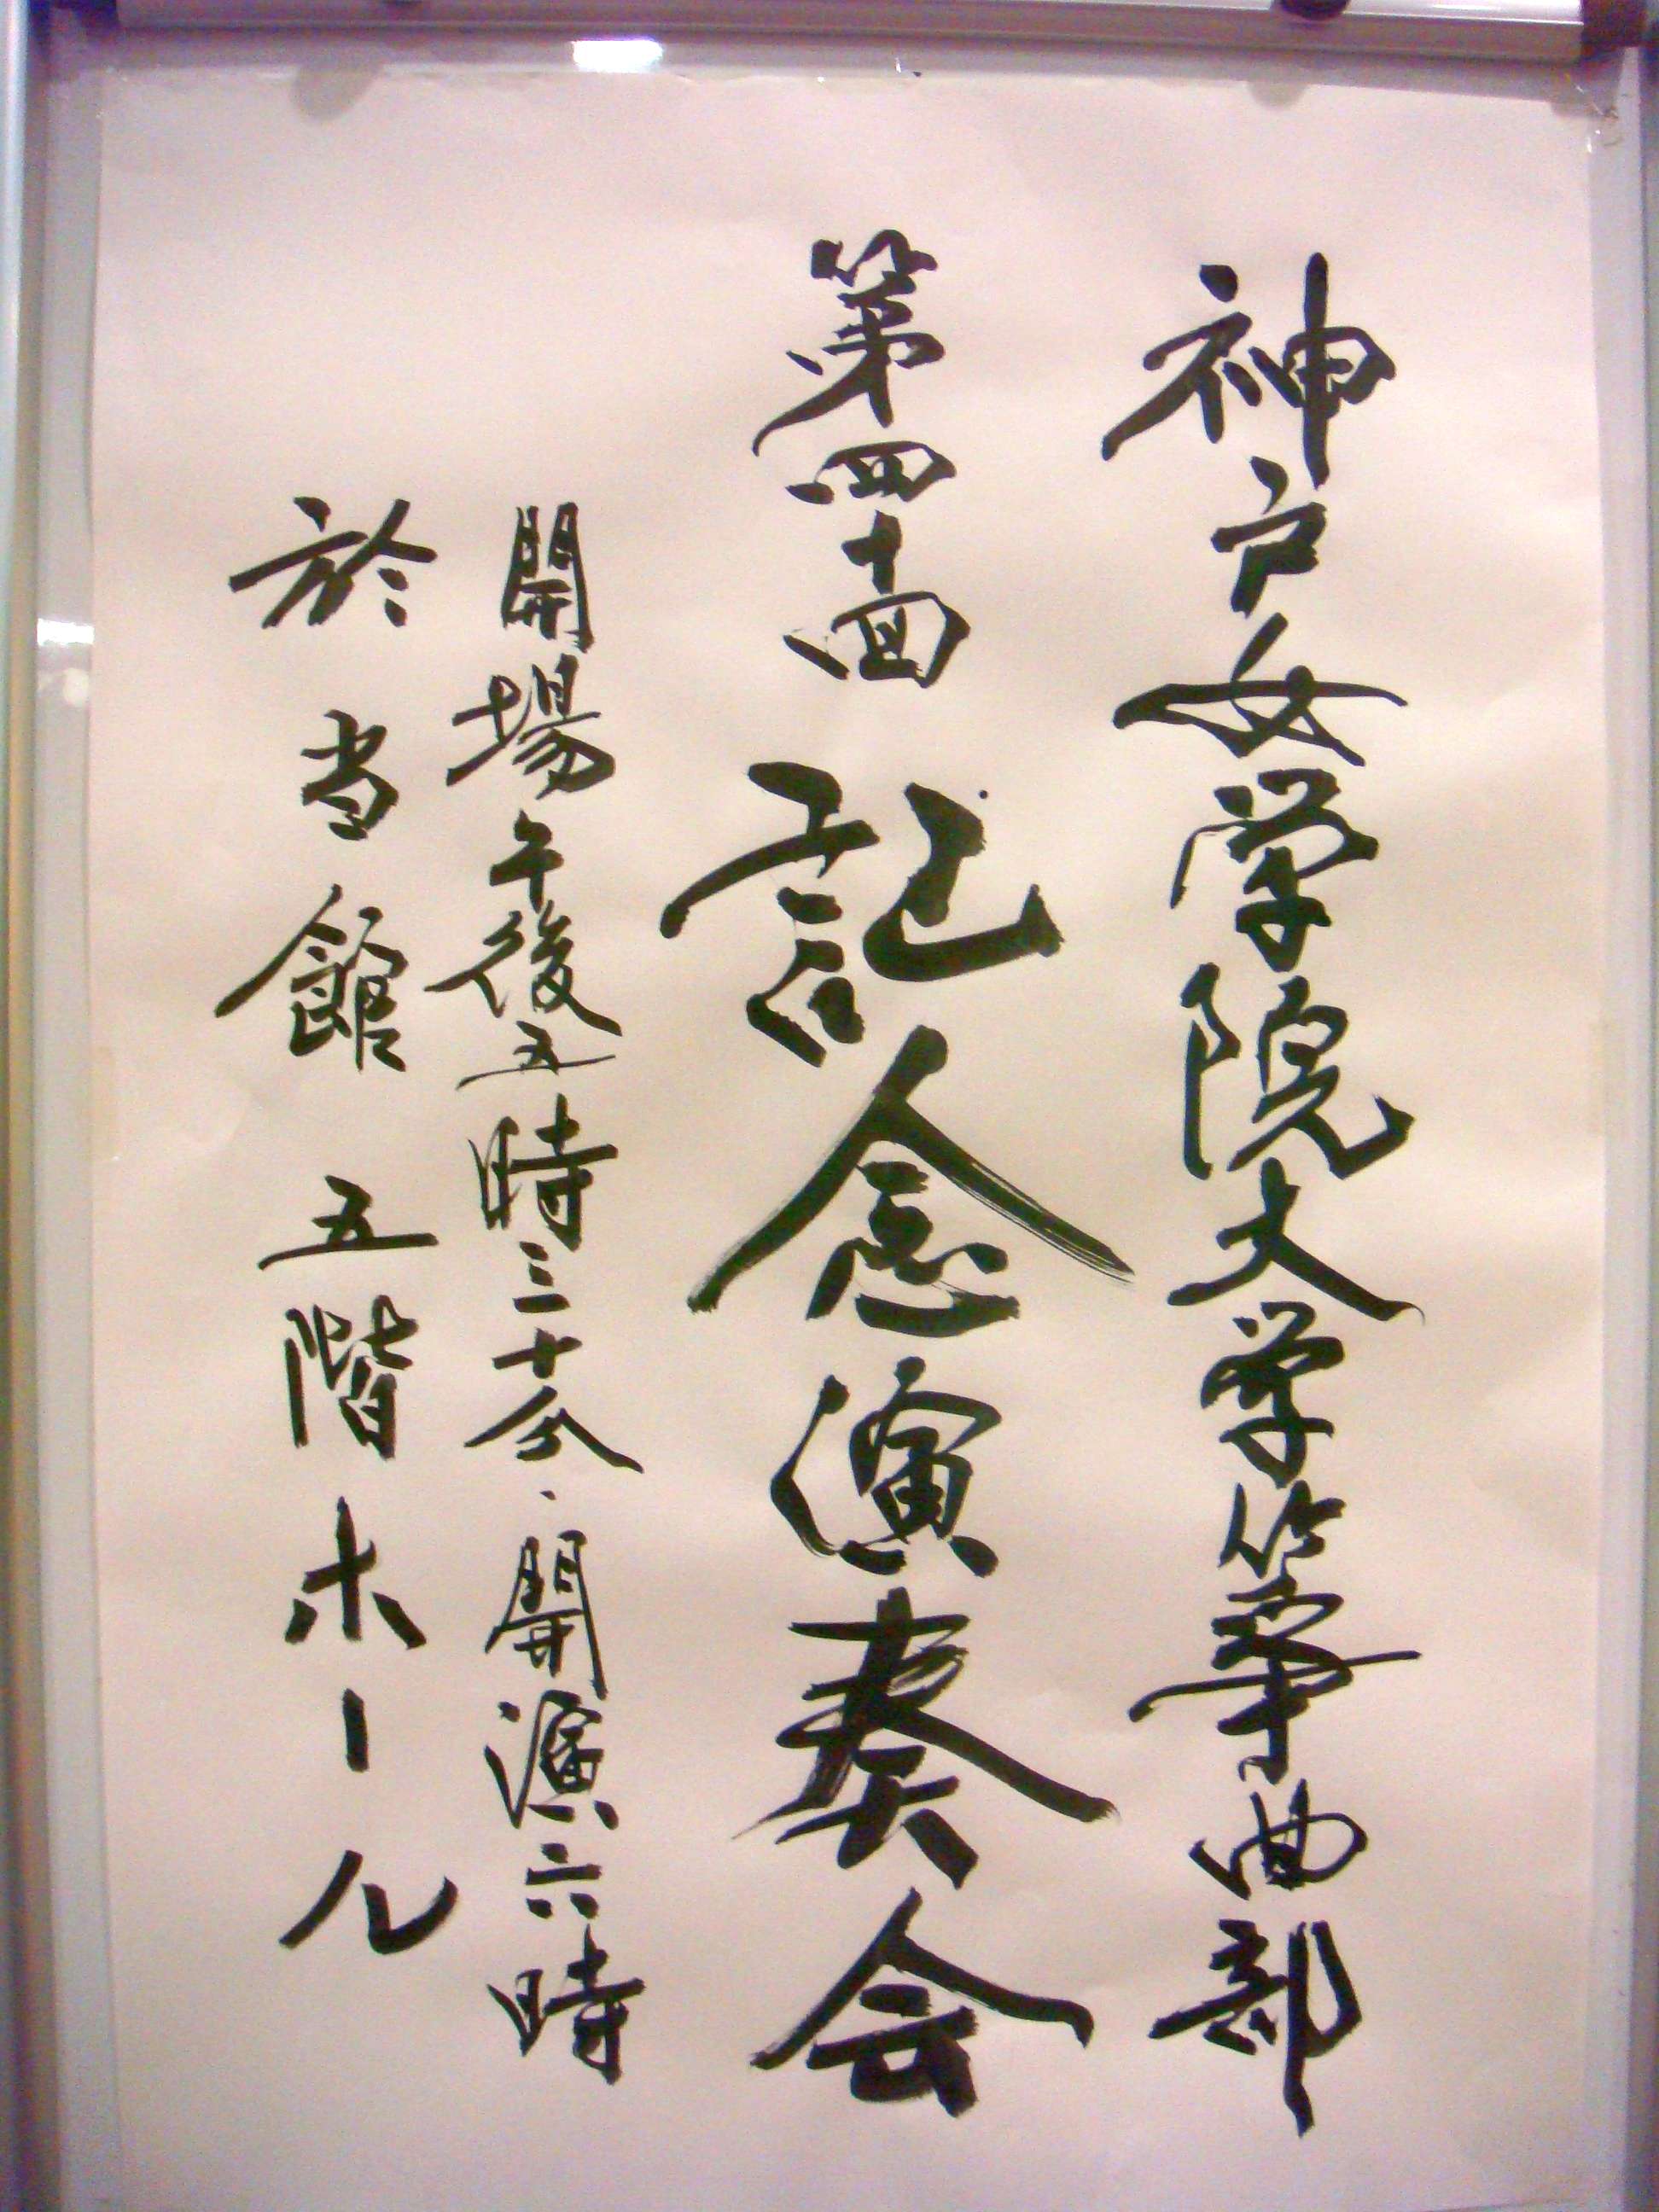 神戸女学院大学箏曲部
第四十回 記念演奏会
開場午後五時三十分、開演六時
於当館 五階ホール